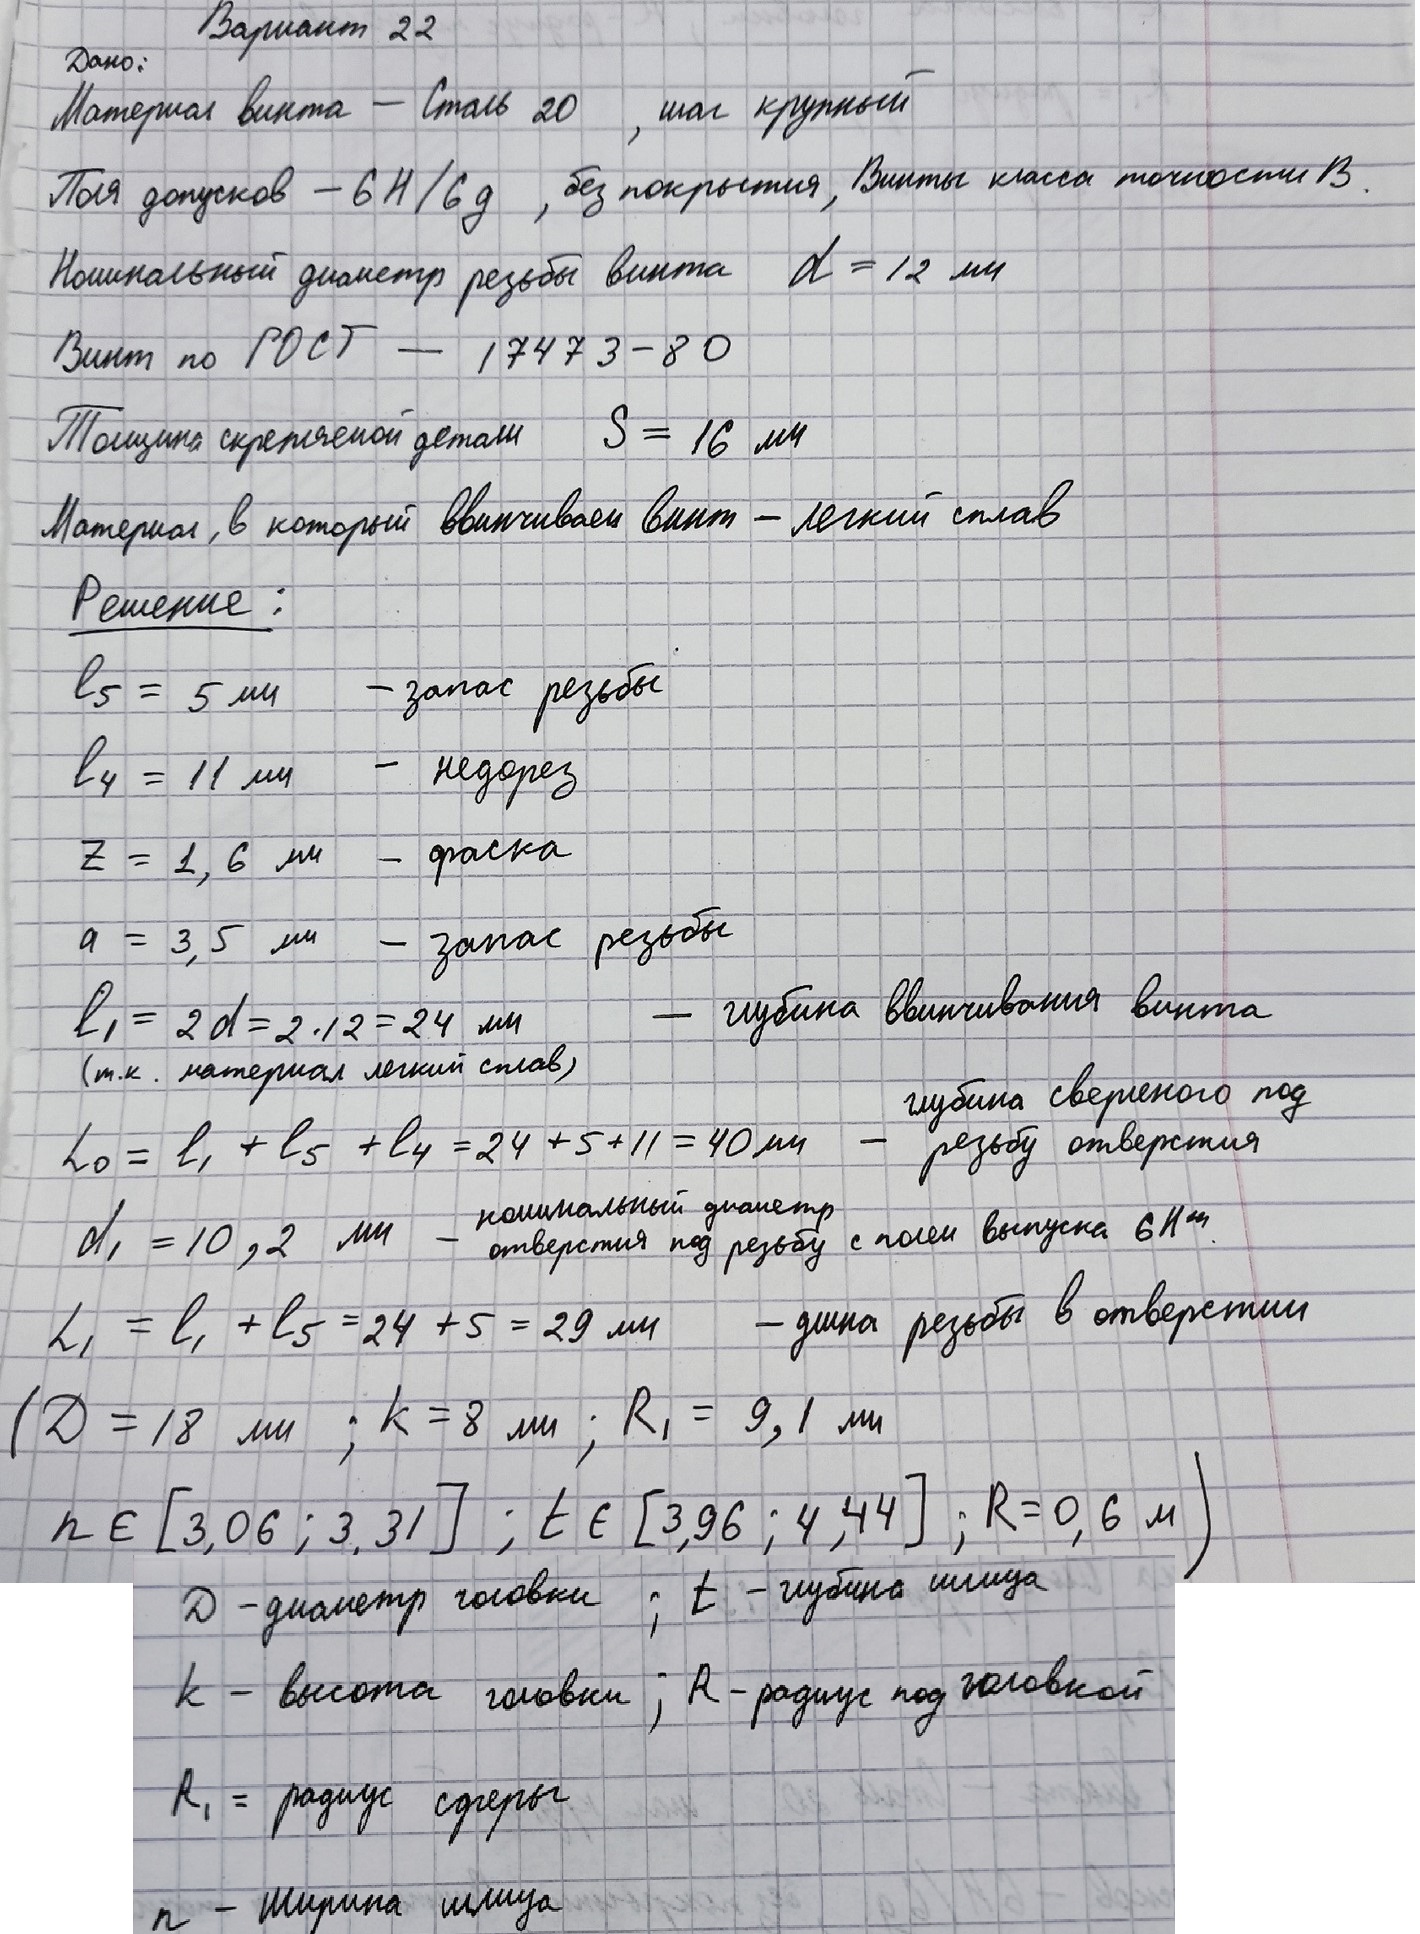 Вариант 22
Дано:
Материал винта – Сталь 20 , шаг крупный
Поля допусков – 6H/6g , без покрытия, Винты класса точности В.
Номинальный диаметр резьбы винта d = 12 мм
Винт по ГОСТ – 17473-80
Толщина скрепляемой детали S = 16 мм
Материал, в который ввинчиваем винт – легкий сплав
Решение:
l5 = 5 мм – запас резьбы
l4 = 11 мм – недорез
z = 1,6 мм – фаска
a = 3,5 мм – запас резьбы
l1 = 2d = 2·12 = 24 мм – глубина ввинчивания винта
(т.к. материал легкий сплав)
L0 = l1 + l5 + l4 = 24 + 5 + 11 = 40 мм – глубина сверленого под резьбу отверстия
d1 = 10,2 мм – номинальный диаметр
отверстия под резьбу с полем выпуска 6H
L1 = l1 + l5 = 24 + 5 = 29 мм – длина резьбы в отверстии
(D = 18 мм ; k = 8 мм ; R1 = 9,1 мм
n ∈ [3,06 ; 3,31] ; t ∈ [3,96 ; 4,44] ; R = 0,6 м)
D – диаметр головки ; t – глубина шлица
k – высота головки ; R – радиус под головкой
R1 = радиус сферы
n – ширина шлица